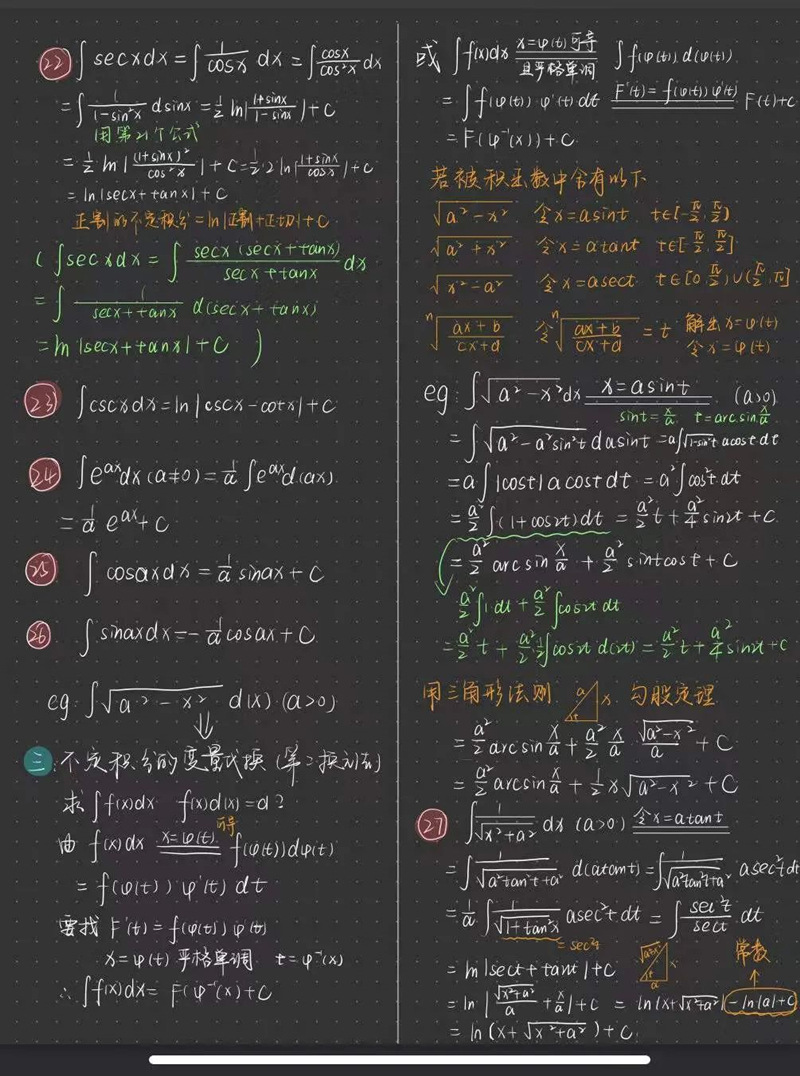 22 ∫secxdx = ∫1/cosx dx = ∫cosx/cos²x dx
= ∫1/(1-sin²x) dsinx = 1/2 ln|(1+sinx)/(1-sinx)| + C
用第21个公式
= 1/2 ln|(1+sinx)²/cos²x| + C = 1/2·2 ln|(1+sinx)/cosx| + C
= ln|secx+tanx| + C
正割的不定积分 = ln|正割+正切| + C
(∫secxdx = ∫secx(secx+tanx)/(secx+tanx) dx
= ∫1/(secx+tanx) d(secx+tanx)
= ln|secx+tanx| + C )
23 ∫cscxdx = ln|cscx-cotx| + C
24 ∫e^(ax)dx (a≠0) = 1/a ∫e^(ax)d(ax)
= 1/a e^(ax) + C
25 ∫cosaxdx = 1/a sinax + C
26 ∫sinaxdx = -1/a cosax + C
eg. ∫√(a²-x²) d(x) (a>0)
⇓
三. 不定积分的变量代换 (第二换元法)
求∫f(x)dx f(x)d(x) = d?
由 f(x)dx x=φ(t) 可导 f(φ(t))dφ(t)
= f(φ(t))φ'(t)dt
要找 F'(t) = f(φ(t))φ'(t)
x=φ(t) 严格单调 t=φ⁻¹(x)
∴∫f(x)dx = F(φ⁻¹(x)+C
或 ∫f(x)dx x=φ(t)可导 且严格单调 ∫f(φ(t))d(φ(t))
= ∫f(φ(t))φ'(t)dt F'(t)=f(φ(t))φ'(t) F(t)+C
= F(φ⁻¹(x))+C
若被积函数中含有以下
√(a²-x²) 令x=asint t∈[-π/2,π/2]
√(a²+x²) 令x=atant t∈[-π/2,π/2]
√(x²-a²) 令x=asect t∈[0,π/2)∪(π/2,π]
ⁿ√((ax+b)/(cx+d)) 令 ⁿ√((ax+b)/(cx+d)) = t 解出x=φ(t)
令x=φ(t)
eg: ∫√(a²-x²)dx x=asint (a>0)
sint=x/a t=arcsin x/a
= ∫√(a²-a²sin²t) dasint = a∫√(1-sin²t) acostdt
= a∫|cost|acostdt = a²∫cos²tdt
= a²/2 ∫(1+cos2t)dt = a²/2 t + a²/4 sin2t + C
= a²/2 arcsin x/a + a²/2 sintcost + C
a²/2 ∫1dt + a²/2 ∫cos2tdt
= a²/2 t + a²/2·1/2 ∫cos2t d(2t) = a²/2 t + a²/4 sin2t + C
用三角形法则 a x t 勾股定理
= a²/2 arcsin x/a + a²/2 x/a √(a²-x²)/a + C
= a²/2 arcsin x/a + 1/2 x√(a²-x²) + C
27 ∫1/√(x²+a²) dx (a>0) 令x=atant
= ∫1/√(a²tan²t+a²) d(atant) = ∫1/√(a²tan²t+a²) asec²tdt
= 1/a ∫1/√(1+tan²x) asec²tdt = ∫sec²t/sect dt
= sec²t
= ln|sect+tant| + C √(a²+x²) x t a 常数
= ln|√(x²+a²)/a + x/a| + C = ln|x+√(x²+a²)| -ln|a|+C
= ln(x+√(x²+a²)) + C